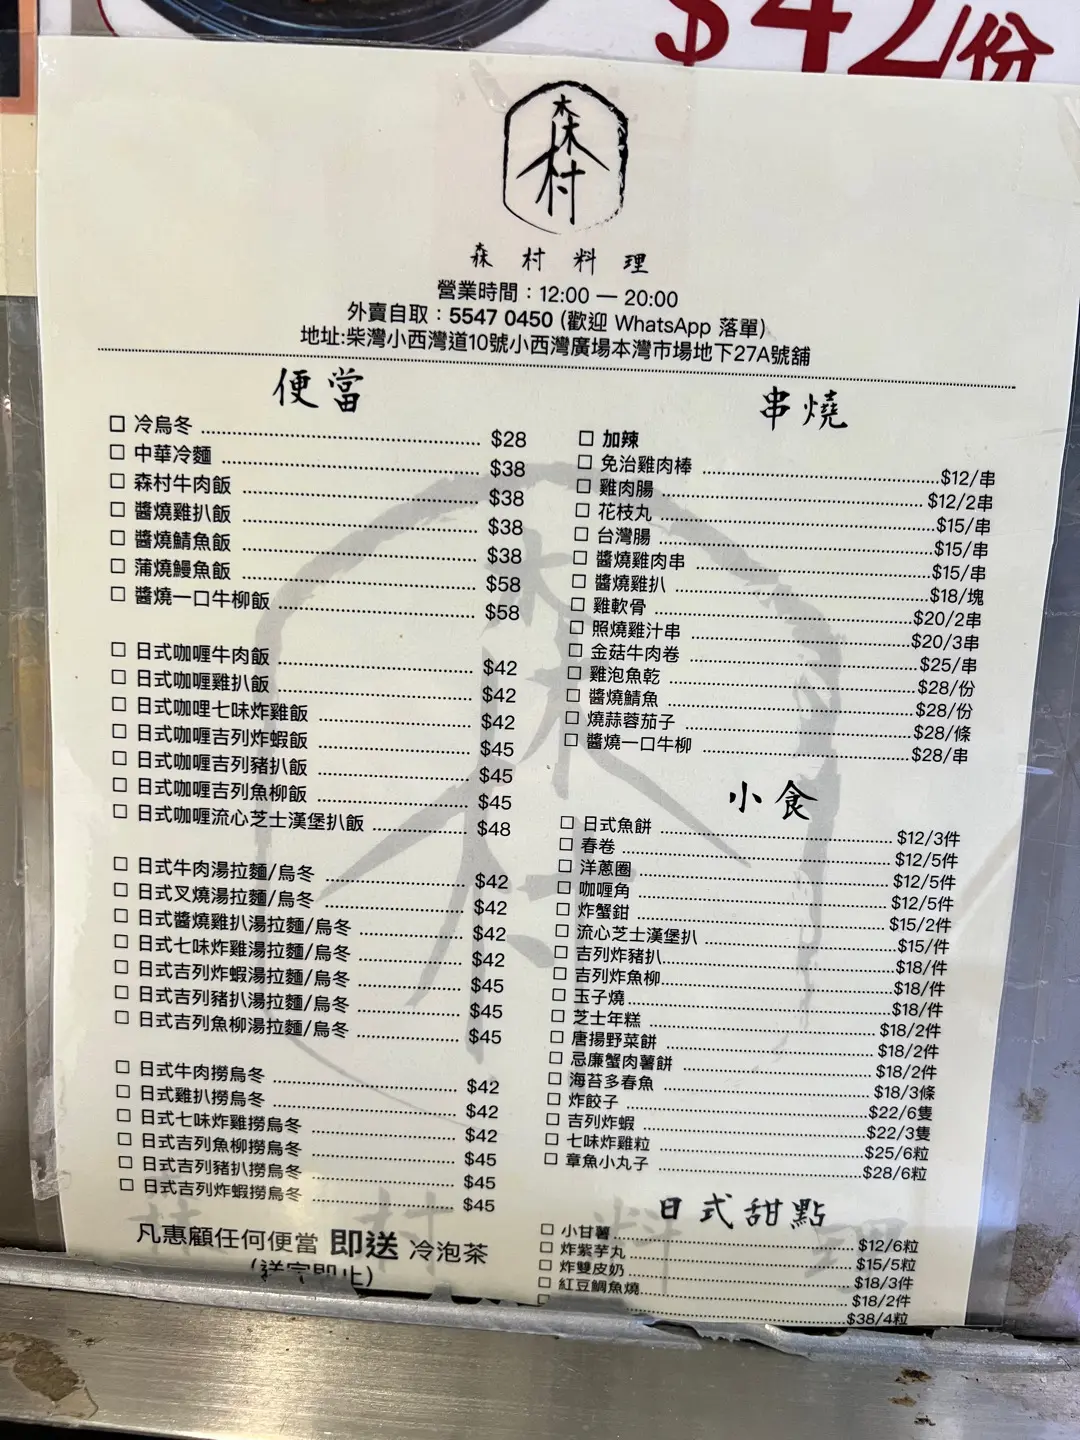 $42/份
森村
森村料理
營業時間：12:00 — 20:00
外賣自取：5547 0450 (歡迎 WhatsApp 落單)
地址:柴灣小西灣道10號小西灣廣場本灣市場地下27A號舖
便當
冷烏冬 $28
中華冷麵 $38
森村牛肉飯 $38
醬燒雞扒飯 $38
醬燒鯖魚飯 $38
蒲燒鰻魚飯 $58
醬燒一口牛柳飯 $58
日式咖喱牛肉飯 $42
日式咖喱雞扒飯 $42
日式咖哩七味炸雞飯 $42
日式咖喱吉列炸蝦飯 $45
日式咖喱吉列豬扒飯 $45
日式咖喱吉列魚柳飯 $45
日式咖喱流心芝士漢堡扒飯 $48
日式牛肉湯拉麵/烏冬 $42
日式叉燒湯拉麵/烏冬 $42
日式醬燒雞扒湯拉麵/烏冬 $42
日式七味炸雞湯拉麵/烏冬 $42
日式吉列炸蝦湯拉麵/烏冬 $45
日式吉列豬扒湯拉麵/烏冬 $45
日式吉列魚柳湯拉麵/烏冬 $45
日式牛肉撈烏冬 $42
日式雞扒撈烏冬 $42
日式七味炸雞撈烏冬 $42
日式吉列魚柳撈烏冬 $45
日式吉列豬扒撈烏冬 $45
日式吉列炸蝦撈烏冬 $45
凡惠顧任何便當 即送 冷泡茶
(送完即止)
串燒
加辣
免治雞肉棒 $12/串
雞肉腸 $12/2串
花枝丸 $15/串
台灣腸 $15/串
醬燒雞肉串 $15/串
醬燒雞扒 $18/塊
雞軟骨 $20/2串
照燒雞汁串 $20/3串
金菇牛肉卷 $25/串
雞泡魚乾 $28/份
醬燒鯖魚 $28/份
燒蒜蓉茄子 $28/條
醬燒一口牛柳 $28/串
小食
日式魚餅 $12/3件
春卷 $12/5件
洋蔥圈 $12/5件
咖喱角 $12/5件
炸蟹鉗 $15/2件
流心芝士漢堡扒 $15/件
吉列炸豬扒 $18/件
吉列炸魚柳 $18/件
玉子燒 $18/件
芝士年糕 $18/2件
唐揚野菜餅 $18/2件
忌廉蟹肉薯餅 $18/2件
海苔多春魚 $18/3條
炸餃子 $22/6隻
吉列炸蝦 $22/3隻
七味炸雞粒 $25/6粒
章魚小丸子 $28/6粒
日式甜點
小甘薯 $12/6粒
炸紫芋丸 $15/5粒
炸雙皮奶 $18/3件
紅豆鯛魚燒 $18/2件
$38/4粒